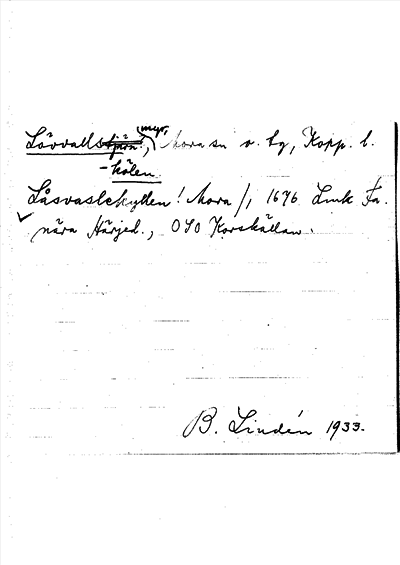 myr,
Lövvallstjärn!, Mora sn o. by, Kopp. l.
-hölen
Låsvaslehyllen! Mora /, 1676 Lmk Fa.
nära Härjed., OSO Korskällan.
B. Lindén 1933.